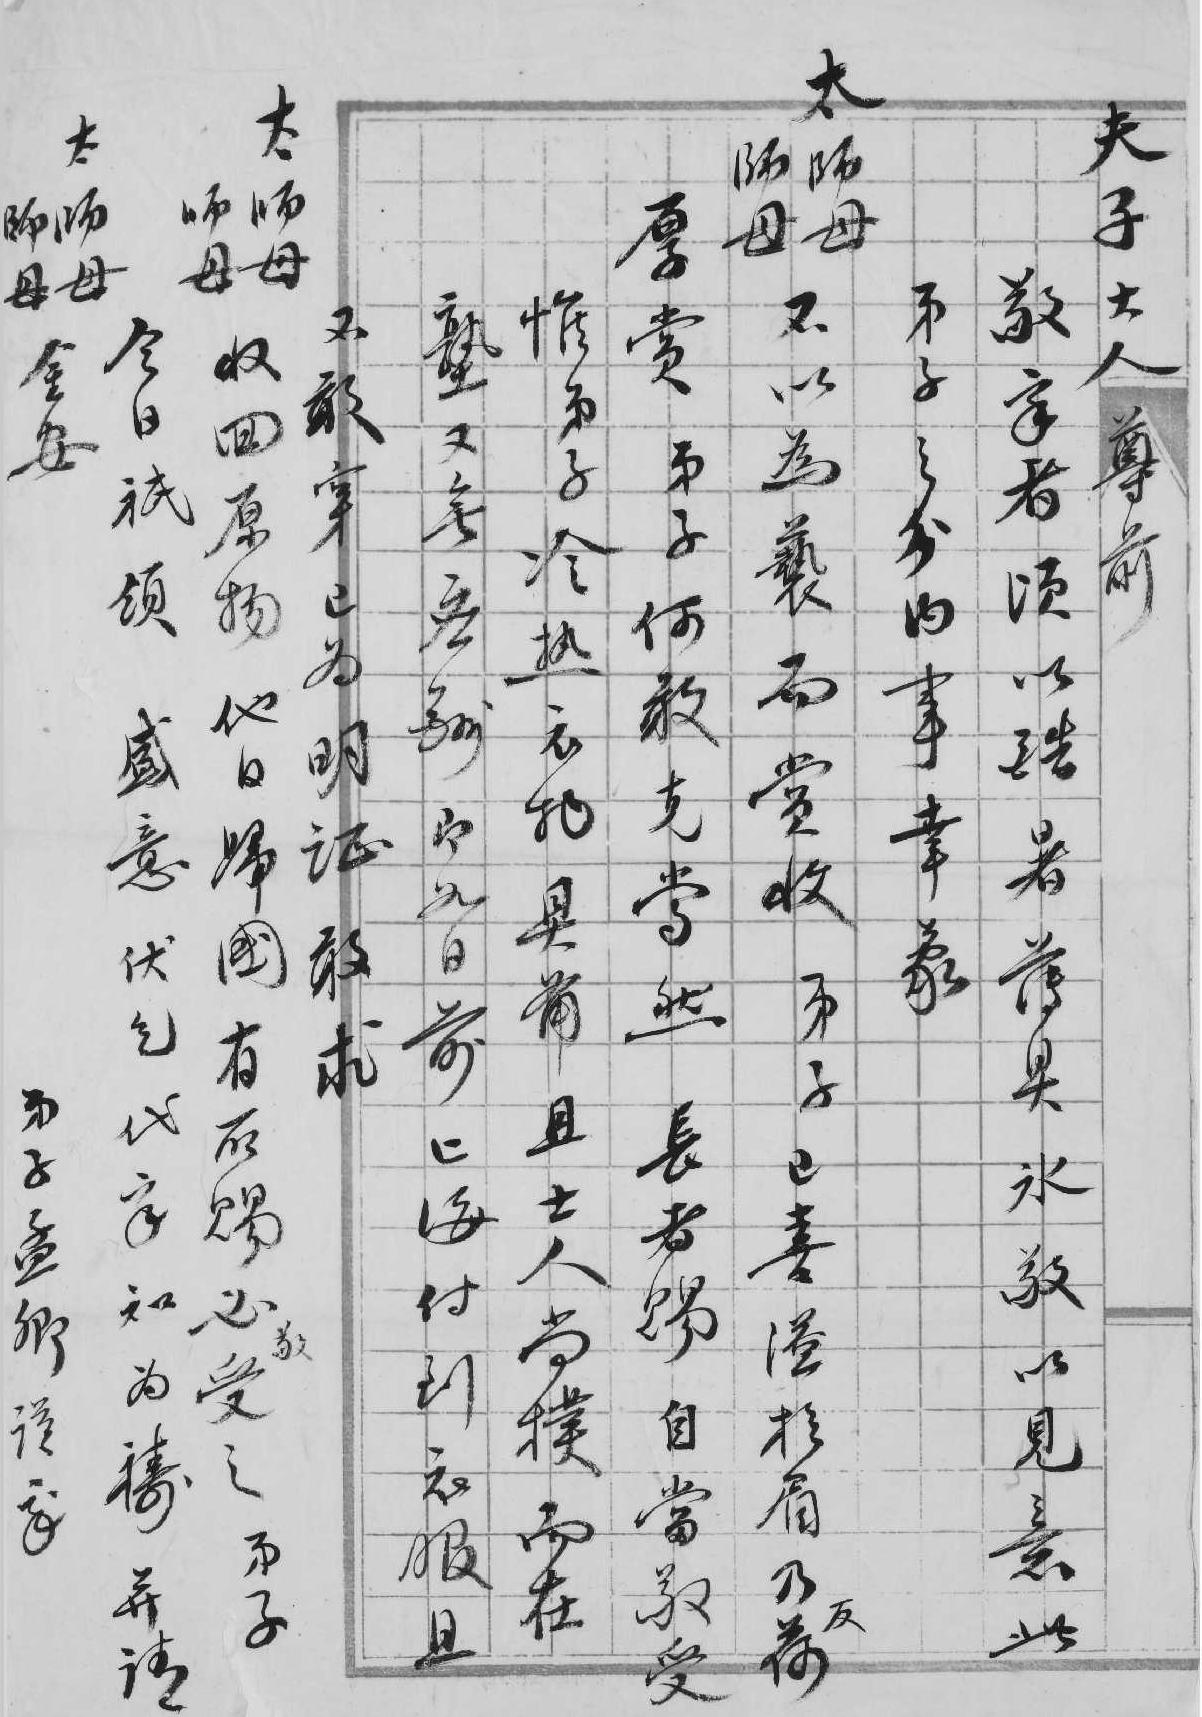 夫子大人尊前
敬稟者頃以酷暑薄具冰敬以見意此
弟子之分内事幸蒙
太師母師母不以為褻而賞收弟子已喜溢於眉乃反荷
厚賞弟子何敢克當然長者賜自當敬受
惟弟子冷热衣物具備且士人尚樸而在
塾又無應酬即九日前上海付到衣服且
不敢穿已为明証敢求
太師母師母收回原物他日歸國有所賜必敬受之弟子
今日祇領盛意伏乞代稟知为禱并請
太師母師母金安
弟子孟卿謹稟